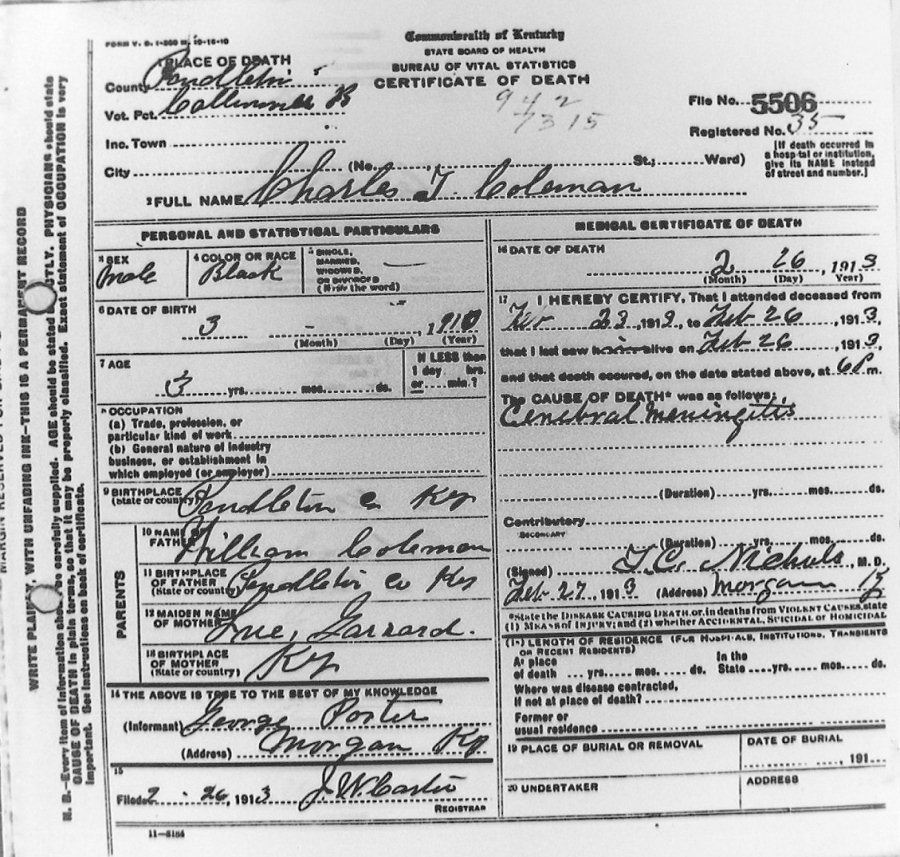 FORM V. S. 1-300 M. 10-16-10
Commonwealth of Kentucky
STATE BOARD OF HEALTH
BUREAU OF VITAL STATISTICS
CERTIFICATE OF DEATH
1 PLACE OF DEATH
County Pendleton
Vot. Pct.
Inc. Town
City
942
7315
File No. 5506
Registered No. 35
(No. St.; Ward)
[If death occurred in
a hospital or institution,
give its NAME instead
of street and number.]
2 FULL NAME Charles T. Coleman
PERSONAL AND STATISTICAL PARTICULARS
3 SEX
Male
4 COLOR OR RACE
Black
5 SINGLE,
MARRIED,
WIDOWED,
OR DIVORCED
(Write the word)
6 DATE OF BIRTH
3 - , 1910
(Month) (Day) (Year)
7 AGE
3 yrs. mos. ds.
If LESS than
1 day hrs.
or min.?
8 OCCUPATION
(a) Trade, profession, or
particular kind of work
(b) General nature of industry
business, or establishment in
which employed (or employer)
9 BIRTHPLACE
(State or country) Pendleton Co Ky
PARENTS
10 NAME OF
FATHER William Coleman
11 BIRTHPLACE
OF FATHER
(State or country) Pendleton Co Ky
12 MAIDEN NAME
OF MOTHER Garrard.
13 BIRTHPLACE
OF MOTHER
(State or country) Ky
14 THE ABOVE IS TRUE TO THE BEST OF MY KNOWLEDGE
(Informant) George Porter
(Address) Morgan Ky
15
Filed 2 - 26, 1913 J. W.
REGISTRAR
11-5184
MEDICAL CERTIFICATE OF DEATH
16 DATE OF DEATH
2 26, 1913
(Month) (Day) (Year)
17 I HEREBY CERTIFY, That I attended deceased from
23, 1913, to Feb 26, 1913,
that I last saw h alive on Feb 26, 1913,
and that death occured, on the date stated above, at 6 P m.
The CAUSE OF DEATH* was as follows:
Cerebral Meningitis
(Duration) yrs. mos. ds.
Contributory
SECONDARY
(Duration) yrs. mos. ds.
(Signed) Nichols, M. D.
Feb 27, 1913 (Address) Morgan Ky
*State the DISEASE CAUSING DEATH, or, in deaths from VIOLENT CAUSES, state
(1) MEANS OF INJURY; and (2) whether ACCIDENTAL, SUICIDAL or HOMICIDAL
18 LENGTH OF RESIDENCE (FOR HOSPITALS, INSTITUTIONS, TRANSIENTS
OR RECENT RESIDENTS)
At place of death yrs. mos. ds. In the State yrs. mos. ds.
Where was disease contracted,
If not at place of death?
Former or
usual residence
19 PLACE OF BURIAL OR REMOVAL
DATE OF BURIAL
191
20 UNDERTAKER
ADDRESS
MARGIN RESERVED FOR
WRITE PLAINLY, WITH UNFADING INK—THIS IS A PERMANENT RECORD
N. B.—Every item of information should be carefully supplied. AGE should be stated EXACTLY. PHYSICIANS should state
CAUSE OF DEATH in plain terms, so that it may be properly classified. Exact statement of OCCUPATION is very
important. See instructions on back of certificate.